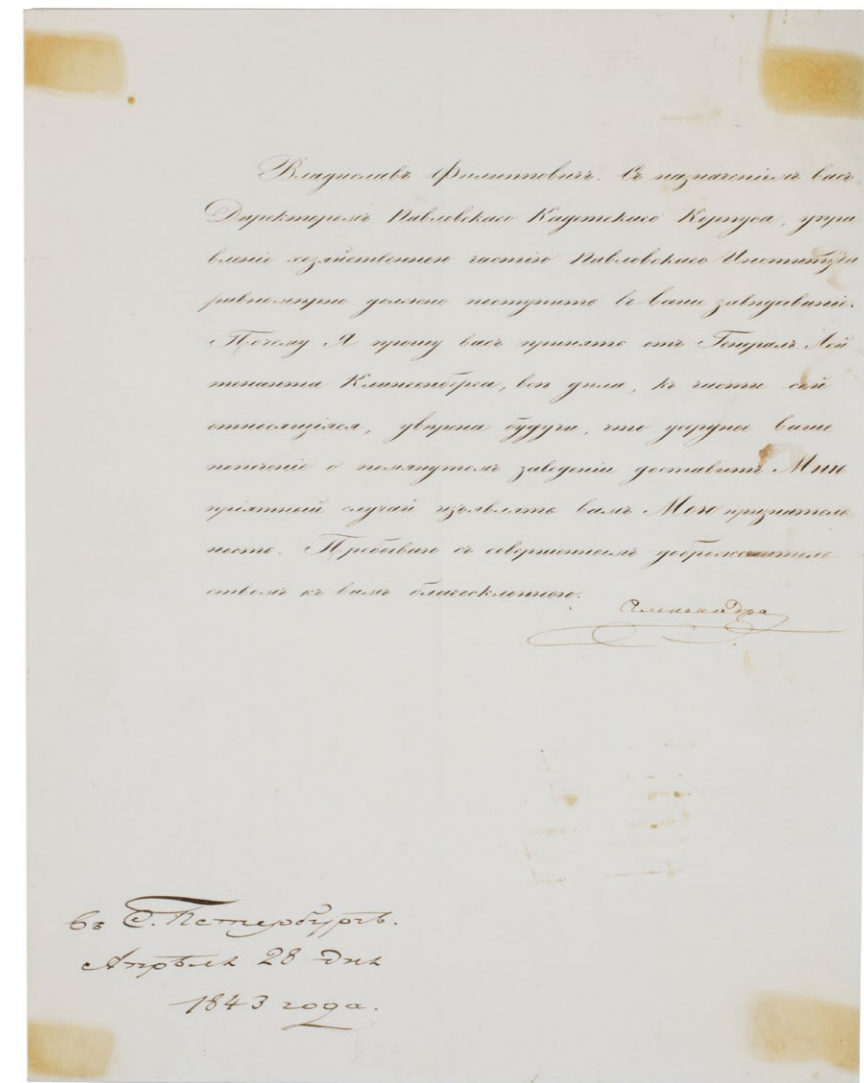 Владиславъ Филипповичъ. Съ назначеніемъ васъ
Директоромъ Павловскаго Кадетскаго Корпуса, упра
вленіе хозяйственною частію Павловскаго Института
равномѣрно должно поступить въ ваше завѣдываніе.
Почему Я прошу васъ принять отъ Генералъ Лей
тенанта Клингенберга, всѣ дѣла, къ части сей
относящіяся, увѣрена будучи, что усердное ваше
попеченіе о помянутомъ заведеніи доставитъ Мнѣ
пріятный случай изъявлять вамъ Мою признатель
ность. Пребываю съ совершеннымъ доброжелатель
ствомъ къ вамъ благосклонною.
Александра
въ С. Петербургѣ.
Апрѣля 28 дня
1843 года.